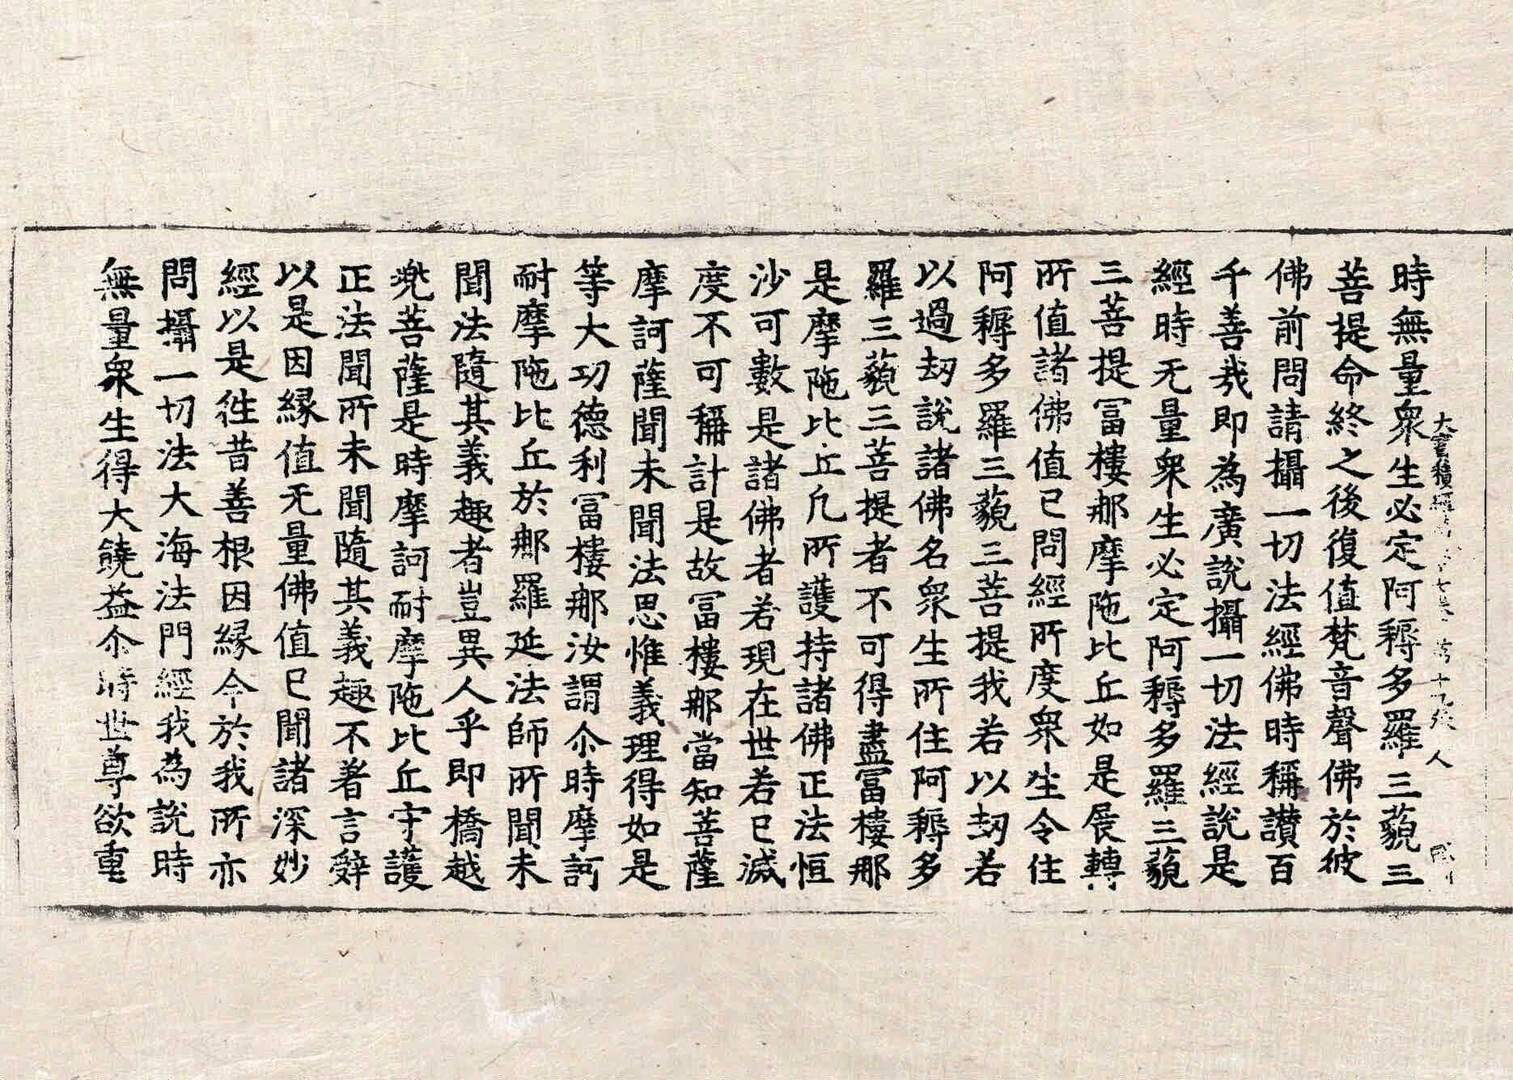 時無量衆生必定阿耨多羅三藐三
菩提命終之後復值梵音聲佛於彼
佛前問請攝一切法經佛時稱讃百
千善㢤即為廣說攝一切法經說是
經時无量衆生必定阿耨多羅三藐
三菩提冨樓那摩陁比丘如是展轉
所值諸佛值已問經所度衆生令住
阿耨多羅三藐三菩提我若以劫若
以過劫說諸佛名衆生所住阿耨多
羅三藐三菩提者不可得盡冨樓那
是摩陁比丘凡所護持諸佛正法恒
沙可數是諸佛者若現在世若已滅
度不可稱計是故冨樓那當知菩薩
摩訶薩聞未聞法思惟義理得如是
等大功德利冨樓那汝謂尒時摩訶
耐摩陁比丘於那羅延法師所聞未
聞法隨其義趣者豈異人乎即橋越
兜菩薩是時摩訶耐摩陁比丘守護
正法聞所未聞隨其義趣不著言辝
以是因縁值无量佛值已聞諸深妙
經以是徃昔善根因縁今於我所亦
問攝一切法大海法門經我為說時
無量衆生得大饒益尒時世尊欲重
大寶積經 七 第十九 人